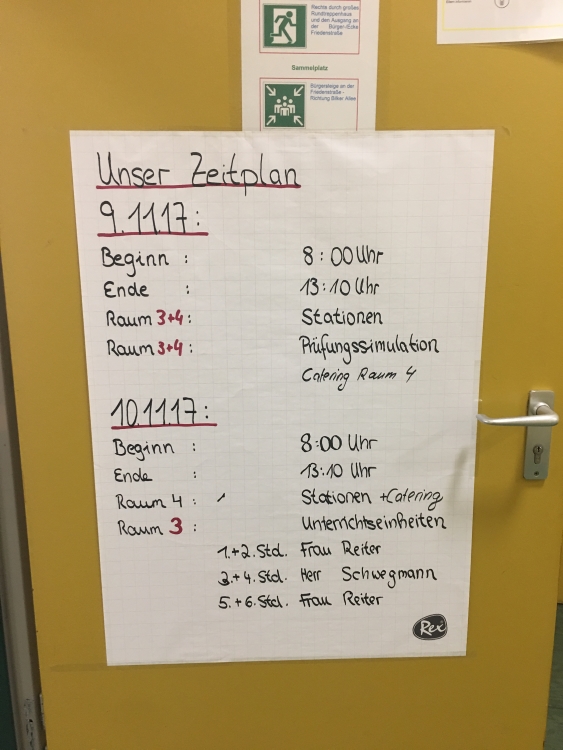 Rechts durch großes
Rundtreppenhaus
und den Ausgang an
der Bürger-Ecke
Friedenstraße
Sammelplatz
Bürgersteige an der
Friedenstraße -
Richtung Bilker Allee
Unser Zeitplan
9.11.17:
Beginn : 8:00 Uhr
Ende : 13:10 Uhr
Raum 3+4: Stationen
Raum 3+4: Prüfungssimulation
Catering Raum 4
10.11.17:
Beginn : 8:00 Uhr
Ende : 13:10 Uhr
Raum 4 : Stationen + Catering
Raum 3 : Unterrichtseinheiten
1.+2. Std. Frau Reiter
3.+4. Std. Herr Schwegmann
5.+6. Std. Frau Reiter
Rex